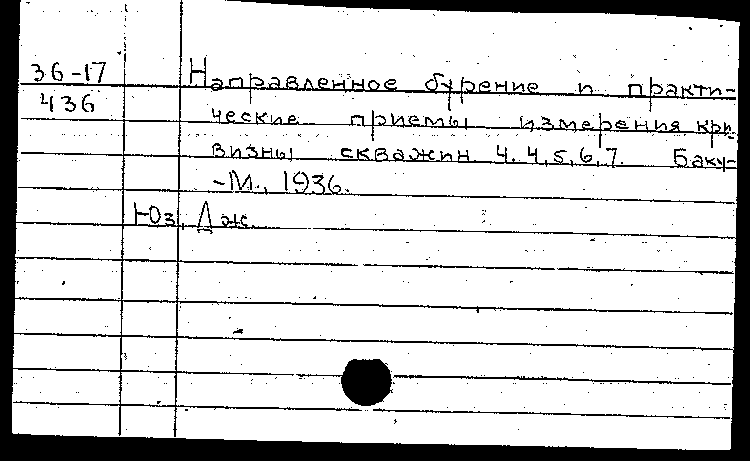 36-17 Направленное бурение и практи-
436 ческие приемы измерения кри-
визны скважин Ч. 4, 5, 6, 7. Баку-
-М., 1936.
Юз, Дж.